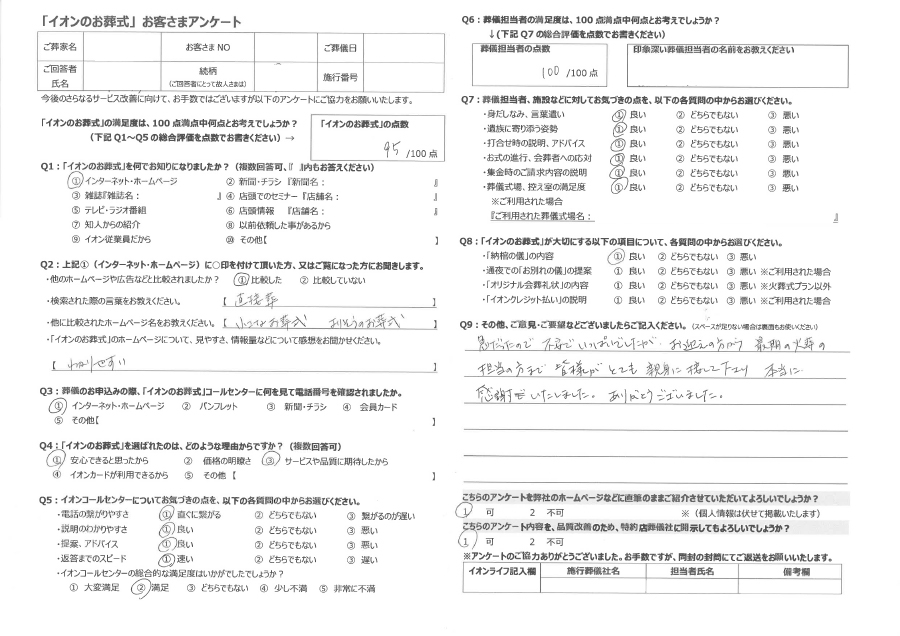 「イオンのお葬式」お客さまアンケート
ご葬家名 お客さまNO ご葬儀日
ご回答者氏名 続柄(ご回答者にとって故人さまは) 施行番号
今後のさらなるサービス改善に向けて、お手数ではございますが以下のアンケートにご協力をお願いいたします。
「イオンのお葬式」の満足度は、100点満点中何点とお考えでしょうか?
(下記Q1~Q5の総合評価を点数でお書きください)→
「イオンのお葬式」の点数
95 /100点
Q1:「イオンのお葬式」を何でお知りになりましたか?(複数回答可、『 』内もお答えください)
① インターネット・ホームページ ② 新聞・チラシ『新聞名: 』
③ 雑誌『雑誌名: 』 ④ 店頭でのセミナー『店舗名: 』
⑤ テレビ・ラジオ番組 ⑥ 店頭情報 『店舗名: 』
⑦ 知人からの紹介 ⑧ 以前依頼した事があるから
⑨ イオン従業員だから ⑩ その他【 】
Q2:上記①(インターネット・ホームページ)に○印を付けて頂いた方、又はご覧になった方にお聞きします。
・他のホームページや広告などと比較されましたか? ① 比較した ② 比較していない
・検索された際の言葉をお教えください。【 直接葬 】
・他に比較されたホームページ名をお教えください。【 小さなお葬式 よりそうのお葬式 】
・「イオンのお葬式」のホームページについて、見やすさ、情報量などについて感想をお聞かせください。
【 わかりやすい 】
Q3:葬儀のお申込みの際、「イオンのお葬式」コールセンターに何を見て電話番号を確認されましたか。
① インターネット・ホームページ ② パンフレット ③ 新聞・チラシ ④ 会員カード
⑤ その他【 】
Q4:「イオンのお葬式」を選ばれたのは、どのような理由からですか?(複数回答可)
① 安心できると思ったから ② 価格の明瞭さ ③ サービスや品質に期待したから
④ イオンカードが利用できるから ⑤ その他 【 】
Q5:イオンコールセンターについてお気づきの点を、以下の各質問の中からお選びください。
・電話の繋がりやすさ ① 直ぐに繋がる ② どちらでもない ③ 繋がるのが遅い
・説明のわかりやすさ ① 良い ② どちらでもない ③ 悪い
・提案、アドバイス ① 良い ② どちらでもない ③ 悪い
・返答までのスピード ① 速い ② どちらでもない ③ 遅い
・イオンコールセンターの総合的な満足度はいかがでしたでしょうか?
① 大変満足 ② 満足 ③ どちらでもない ④ 少し不満 ⑤ 非常に不満
Q6:葬儀担当者の満足度は、100点満点中何点とお考えでしょうか?
↓(下記Q7の総合評価を点数でお書きください)
葬儀担当者の点数 印象深い葬儀担当者の名前をお教えください
100 /100点
Q7:葬儀担当者、施設などに対してお気づきの点を、以下の各質問の中からお選びください。
・身だしなみ、言葉遣い ① 良い ② どちらでもない ③ 悪い
・遺族に寄り添う姿勢 ① 良い ② どちらでもない ③ 悪い
・打合せ時の説明、アドバイス ① 良い ② どちらでもない ③ 悪い
・お式の進行、会葬者への応対 ① 良い ② どちらでもない ③ 悪い
・集金時のご請求内容の説明 ① 良い ② どちらでもない ③ 悪い
・葬儀式場、控え室の満足度 ① 良い ② どちらでもない ③ 悪い
※ご利用された場合
『ご利用された葬儀式場名: 』
Q8:「イオンのお葬式」が大切にする以下の項目について、各質問の中からお選びください。
・「納棺の儀」の内容 ① 良い ② どちらでもない ③ 悪い
・通夜での「お別れの儀」の提案 ① 良い ② どちらでもない ③ 悪い ※ご利用された場合
・「オリジナル会葬礼状」の内容 ① 良い ② どちらでもない ③ 悪い ※火葬式プラン以外
・「イオンクレジット払い」の説明 ① 良い ② どちらでもない ③ 悪い ※ご利用された場合
Q9:その他、ご意見・ご要望などございましたらご記入ください。(スペースが足りない場合は裏面もお使いください)
急だったので 不安で いっぱいでしたが、お迎えの方から 最期の火葬の
担当の方まで 皆様が とても 親身に 接して下さり 本当に
感謝いたしました。 ありがとうございました。
こちらのアンケートを弊社のホームページなどに直筆のままご紹介させていただいてよろしいでしょうか?
1 可 2 不可 ※(個人情報は伏せて掲載いたします)
こちらのアンケート内容を、品質改善のため、特約店葬儀社に開示してもよろしいでしょうか?
1 可 2 不可
※アンケートのご協力ありがとうございました。お手数ですが、同封の封筒にてご返送をお願いいたします。
イオンライフ記入欄 施行葬儀社名 担当者氏名 備考欄